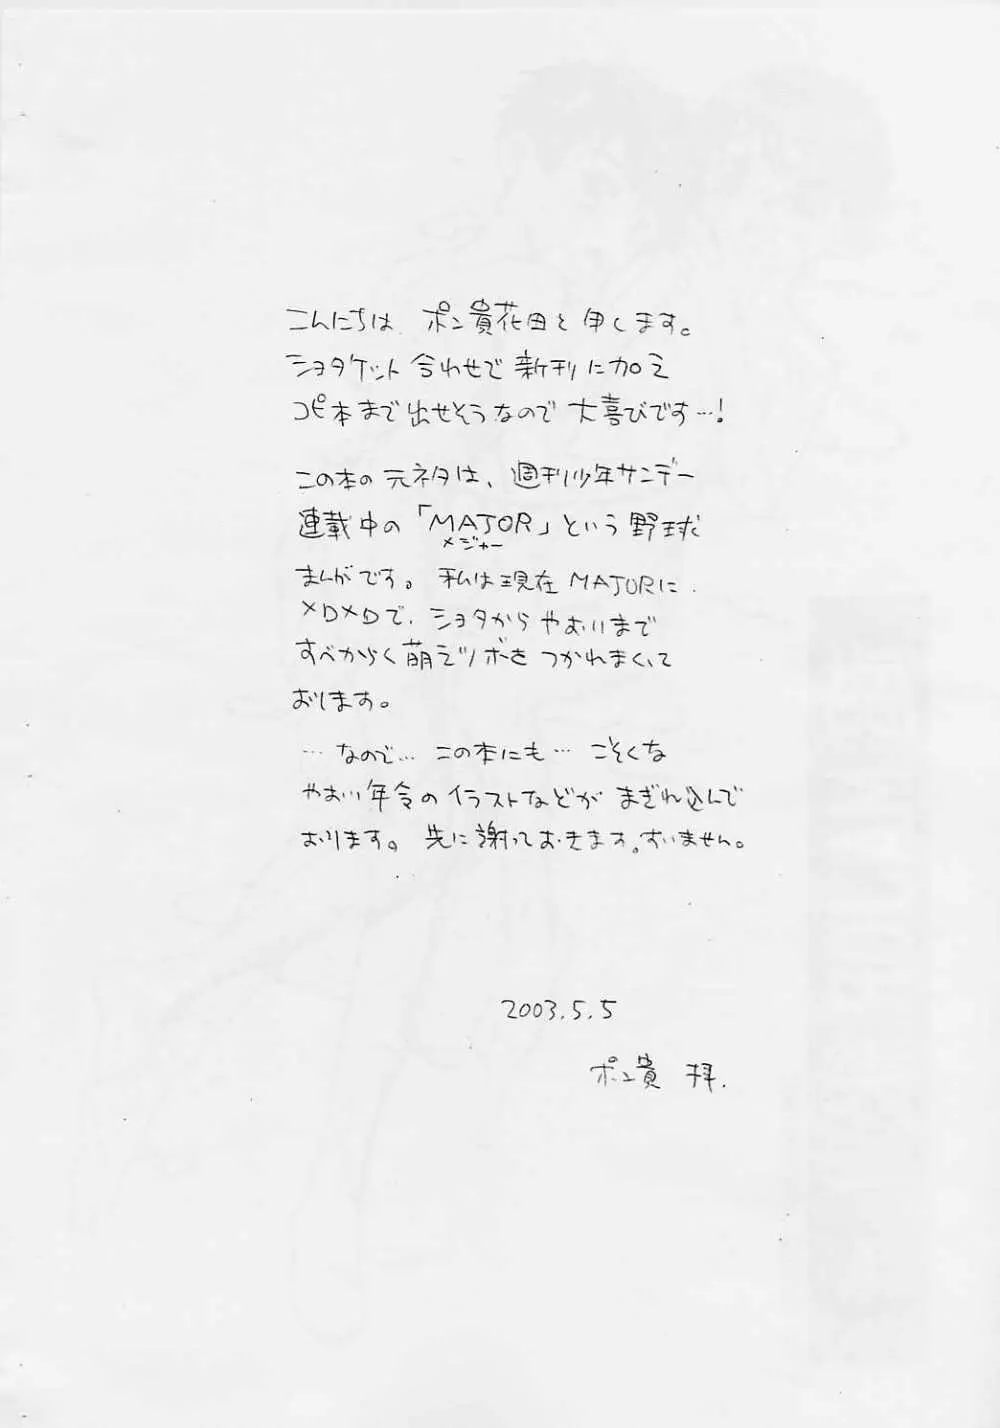 こんにちは、ポン貴花田と申します。
ショタケット合わせで新刊に加え
コピ本まで出せそうなので大喜びです…!
この本の元ネタは、週刊少年サンデー
連載中の「MAJOR」という野球
メジャー
まんがです。私は現在MAJORに
メロメロで、ショタからやおいまで
すべからく萌えツボをつかれまくって
おります。
…なので…この本にも…こそくな
やおい年令のイラストなどがまぎれ込んで
おります。先に謝っておきます。すいません。
2003.5.5
ポン貴 拝.